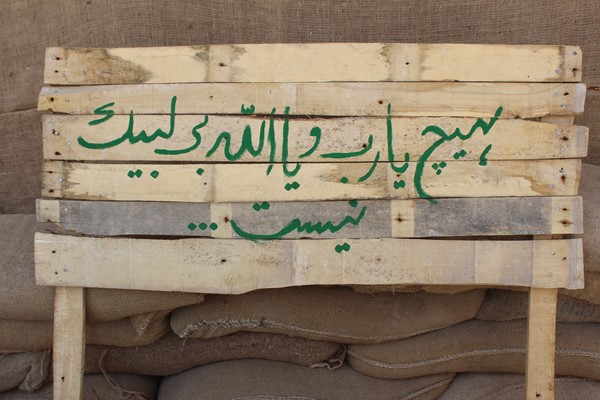 هیچ یارب و یا الله بی لبیک
نیست ...